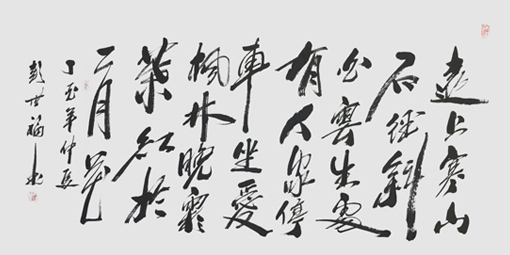 遠上寒山
石徑斜
白雲生處
有人家停
車坐愛
楓林晚霜
葉紅於
二月花
丁亥年仲夏
彭世福書